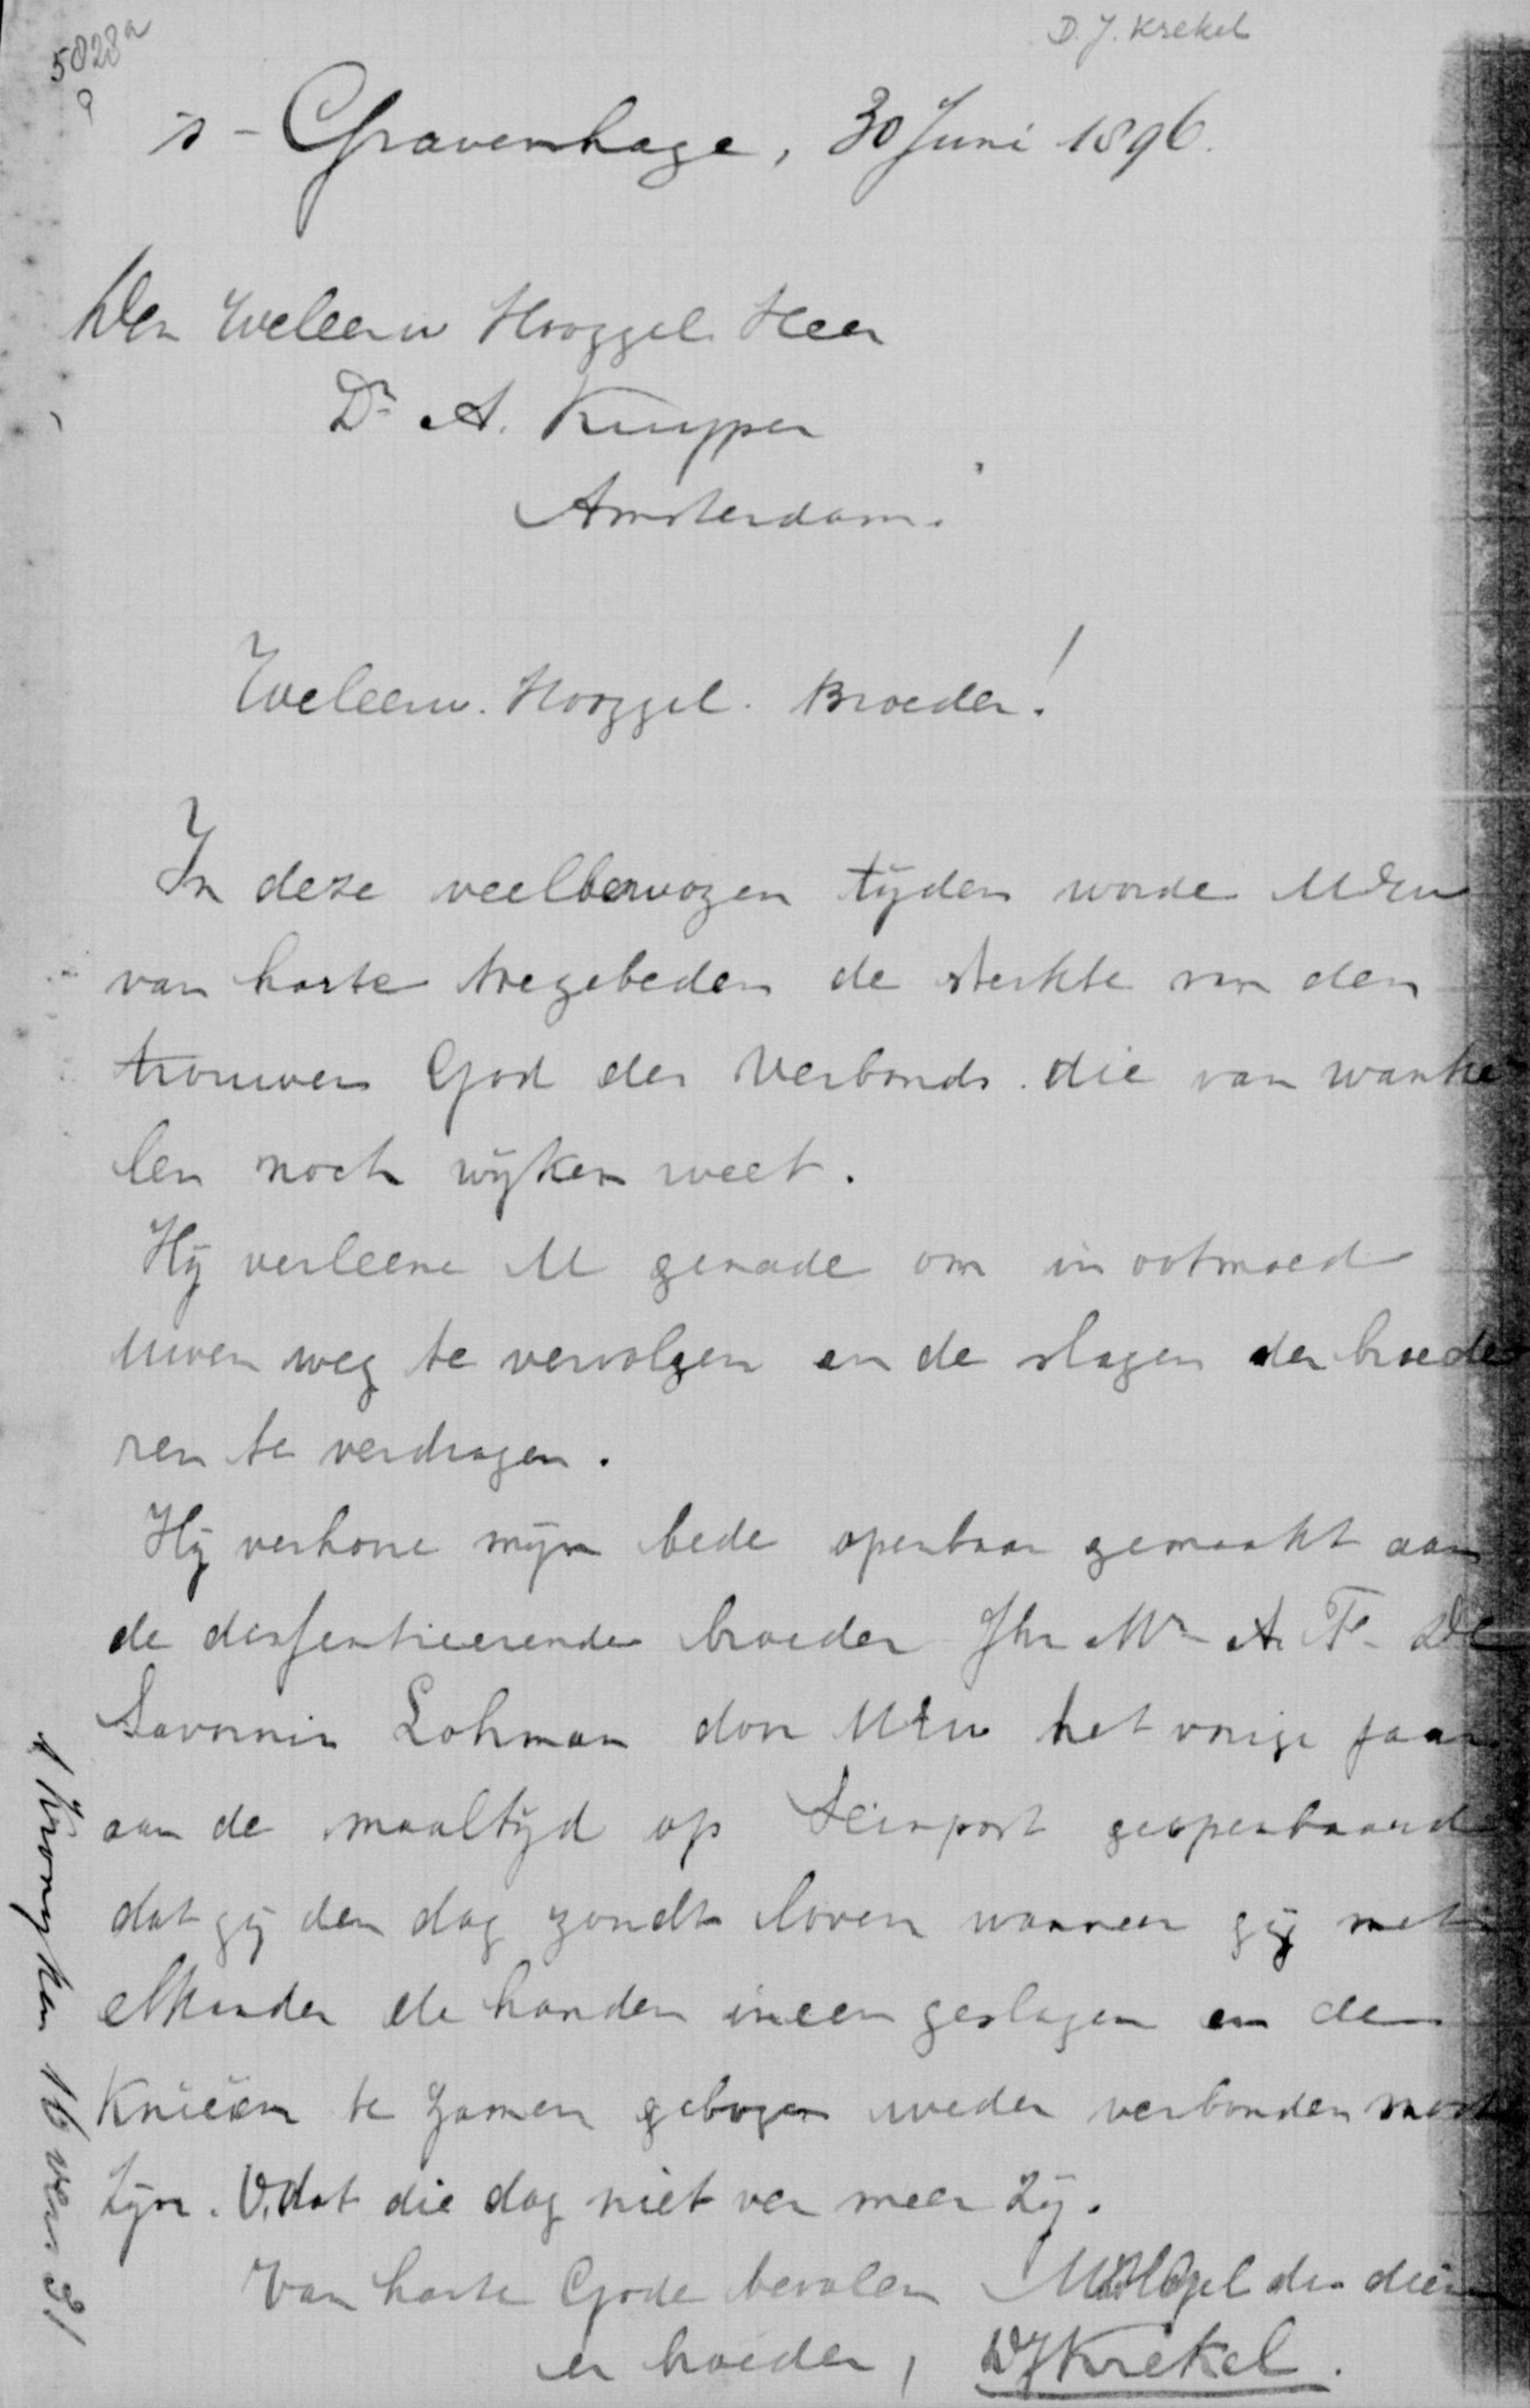 5828a
D. J. Krekel
's-Gravenhage, 30 Juni 1896.
Den Weleerw Hooggel. Heer
Dr. A. Kuyper
Amsterdam.
Weleerw. Hooggel. Broeder!
In deze veelbewogen tijden worde UEw
van harte toegebeden de sterkte van den
trouwen God des Verbonds die van wanke
len noch wijken weet.
Hij verleene U genade om in ootmoed
uwen weg te vervolgen en de slagen der broede
ren te verdragen.
Hij verhore mijn bede openbaar gemaakt aan
de dessentieerende broeder Jhr Mr A. F. De
Savornin Lohman door UEw het vorige jaar
aan de maaltijd op Seinpost geopenbaard
dat gij den dag zoudt loven wanneer gij met
elkander de handen ineen geslagen en de
Knieën te zamen gebogen weder verbonden mocht
zijn. O, dat die dag niet ver meer zij.
Van harte Gode bevolen UwHgel ds dien
en broeder, DJKrekel.
1 Kronyken 16 vers 31